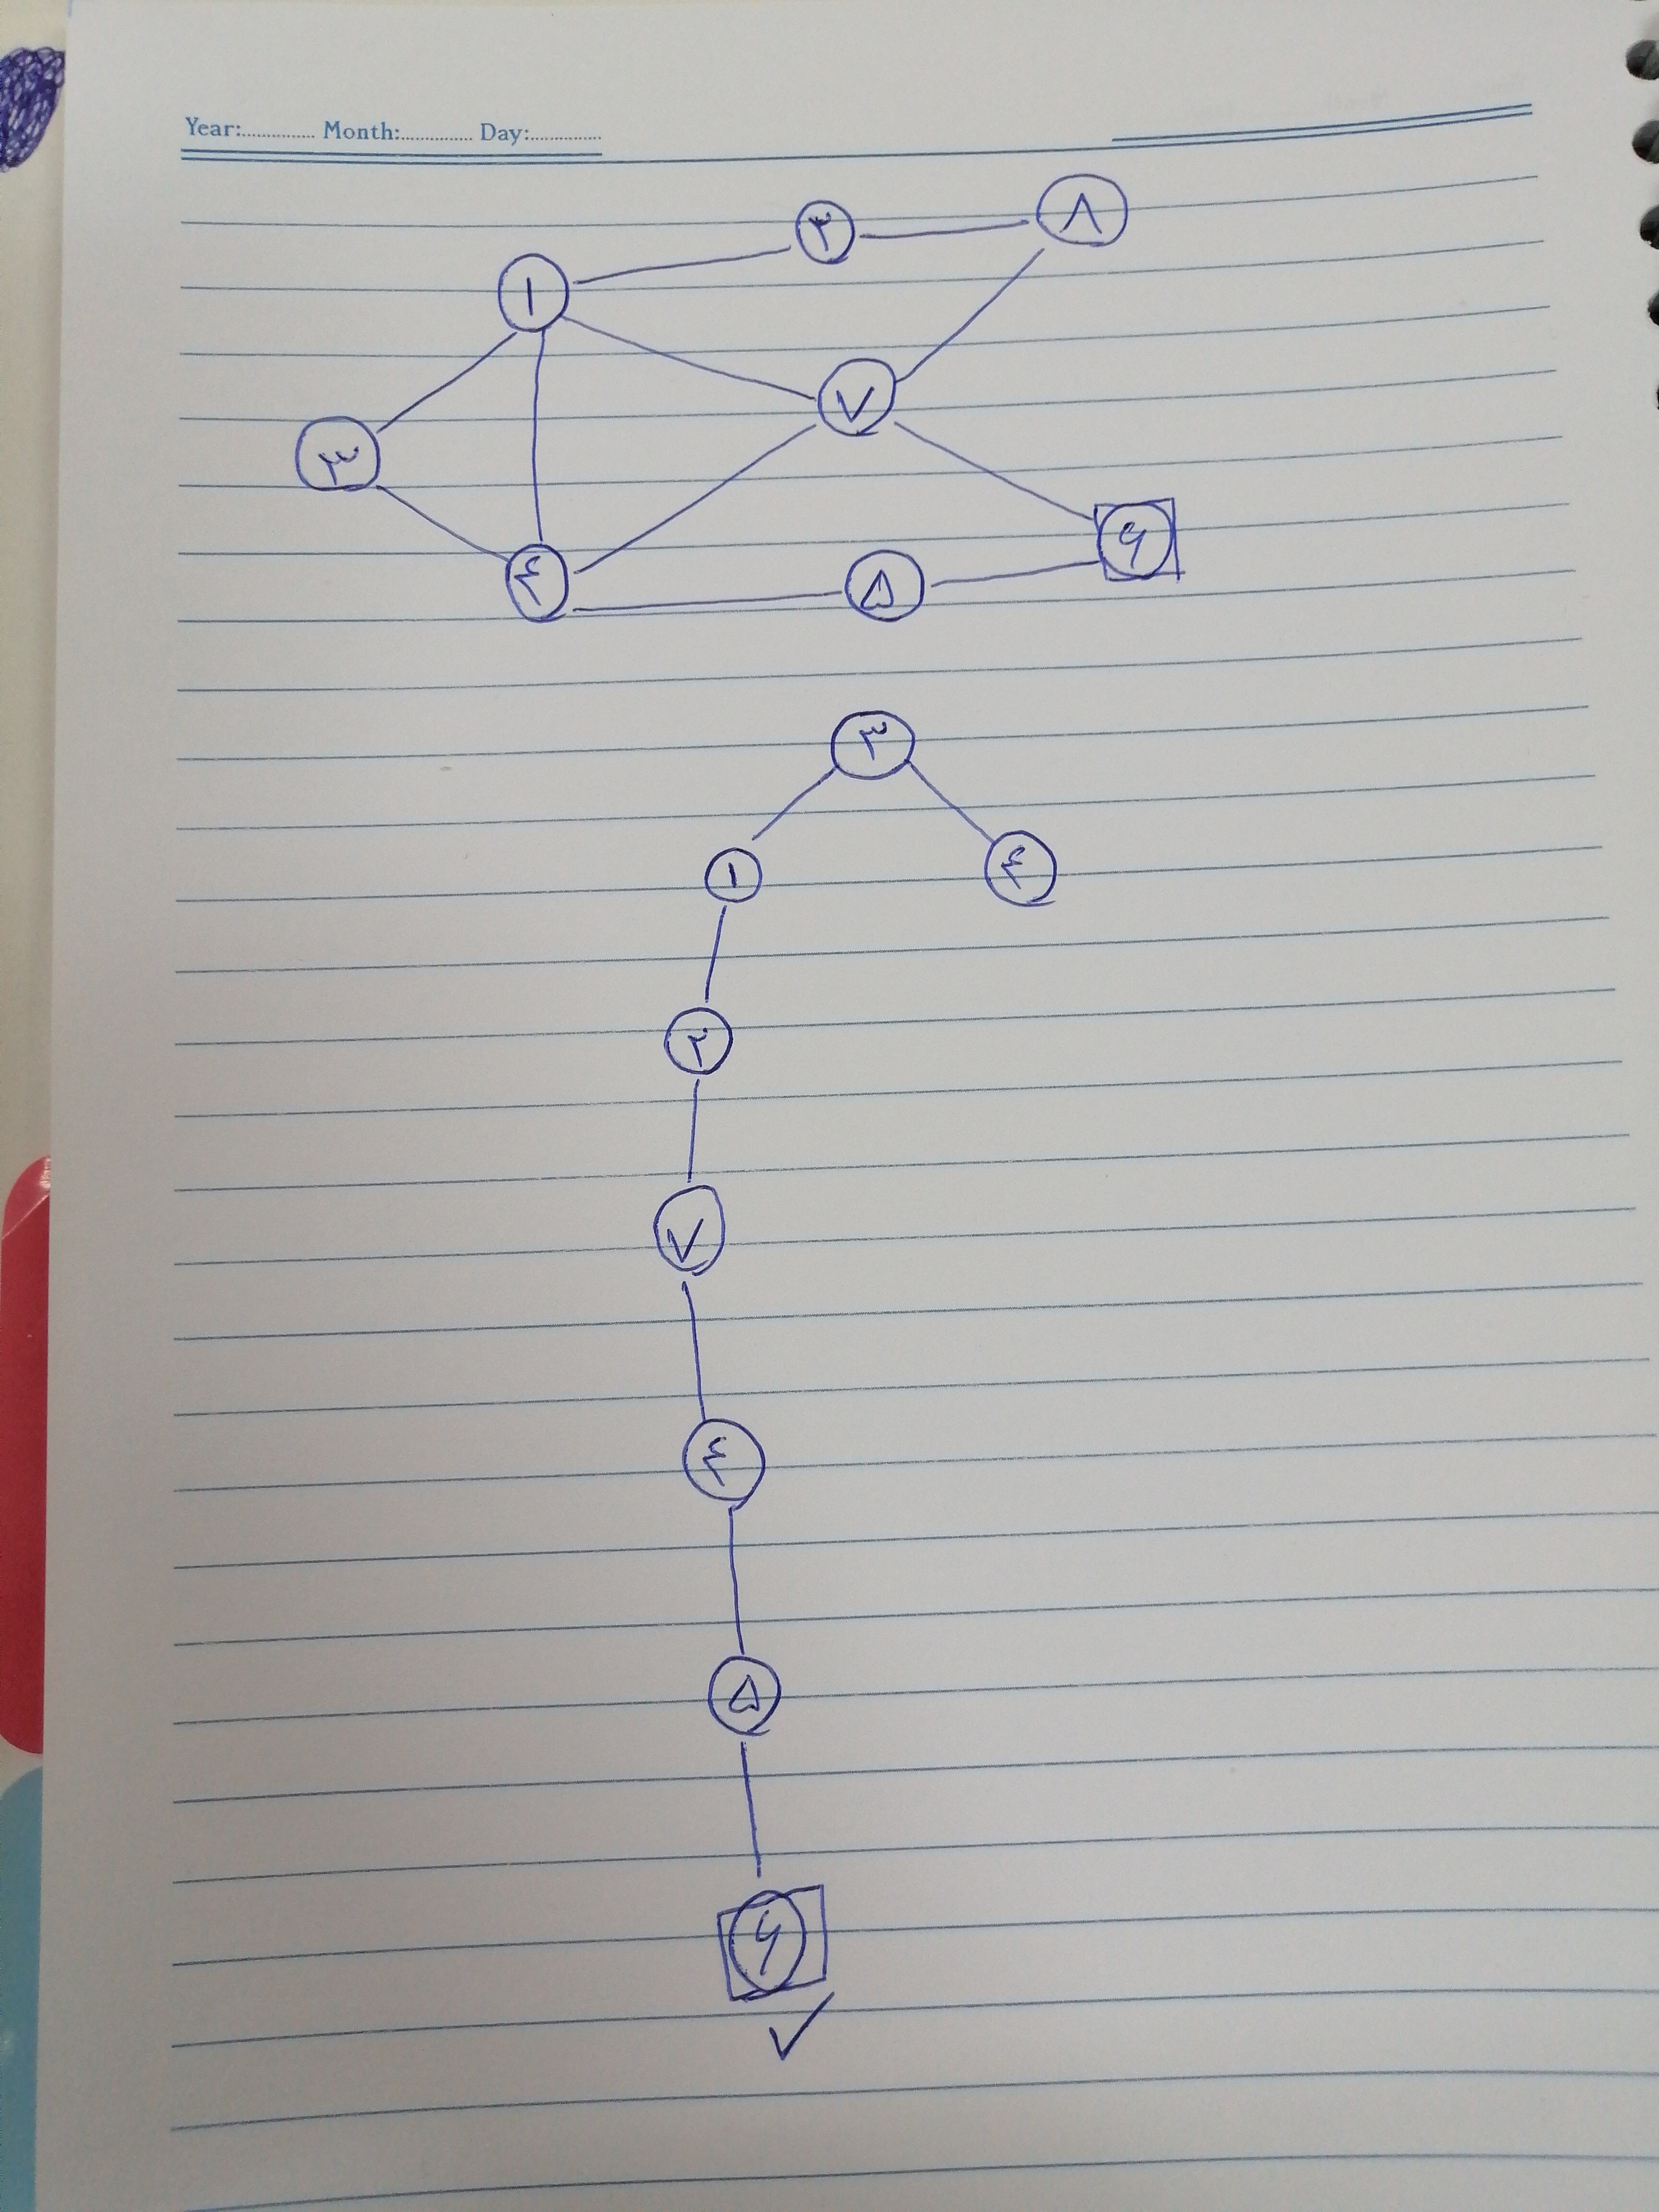 Year:.............. Month:.............. Day:..............
۲ ۸
۱
۷
۳
۶
۴ ۵
۳
۱ ۴
۲
۷
۴
۵
۶